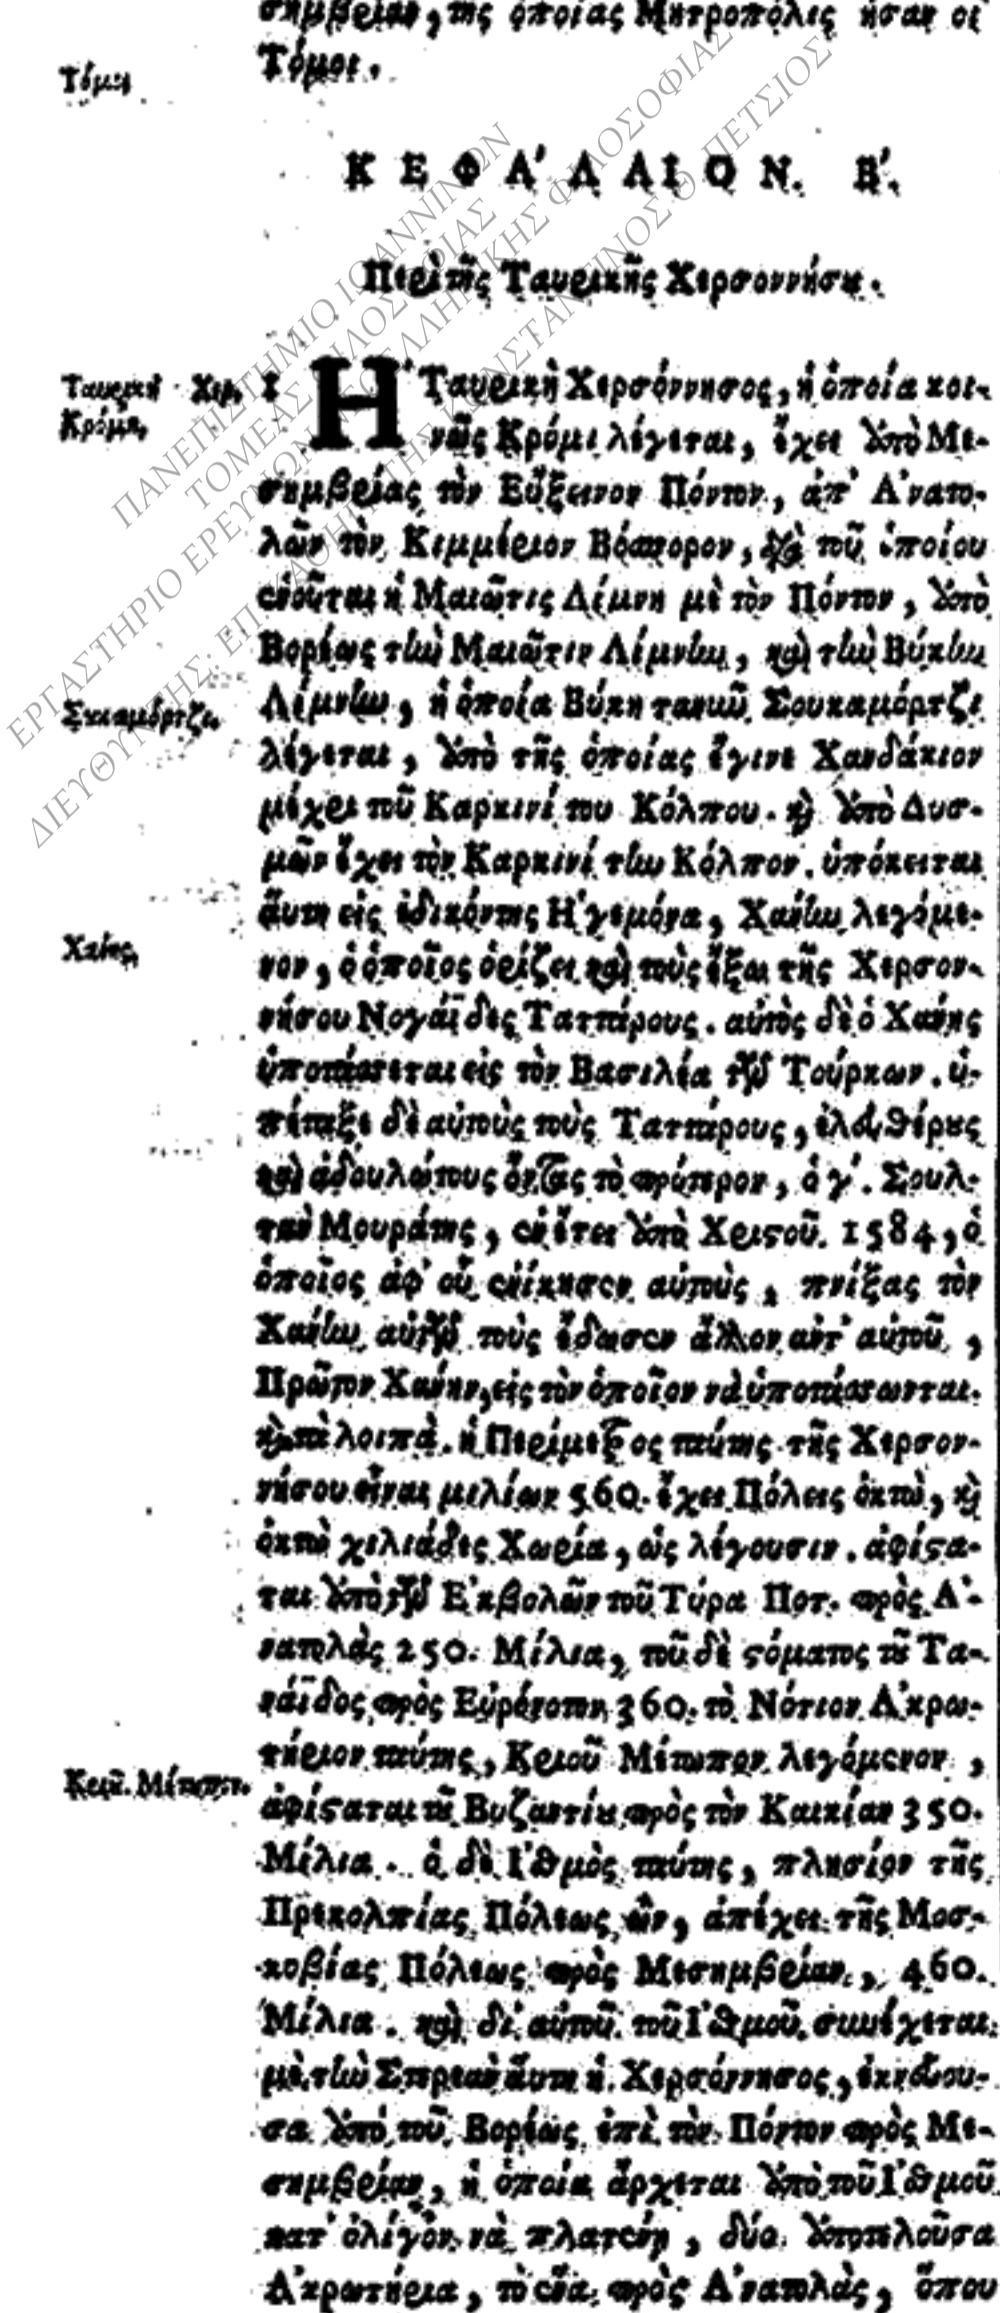 σημβρίαν, της ὁποίας Μητρόπολις ἦσαν οἱ
Τόμοι.
Τόμοι
ΚΕΦΑ'ΛΑΙΟΝ. Β'.
Περὶ τῆς Ταυρικῆς Χερσοννήσου.
Ταυρικὴ Χερ.
Κρόμι.
1 Η Ταυρικὴ Χερσόννησος, ἡ ὁποία κοι-
νῶς Κρόμι λέγεται, ἔχει ἀπὸ Με-
σημβρίας τὸν Εὔξεινον Πόντον, ἀπ' Ἀνατο-
λῶν τὸν Κιμμέριον Βόσπορον, διὰ τοῦ ὁποίου
ἑνοῦται ἡ Μαιῶτις Λίμνη μὲ τὸν Πόντον, ἀπὸ
Βορέως τὴν Μαιῶτιν Λίμνην, καὶ τὴν Βύκην
Λίμνην, ἡ ὁποία Βύκη τανῦν Σουκαμόρτζι
Σουκαμόρτζι.
λέγεται, ἀπὸ τῆς ὁποίας ἔγινε Χανδάκιον
μέχρι τοῦ Καρκινίτου Κόλπου. καὶ ἀπὸ Δυσ-
μῶν ἔχει τὸν Καρκινίτην Κόλπον. ὑπόκειται
αὕτη εἰς ἰδικόντης Ἡγεμόνα, Χάνην λεγόμε-
Χάνης.
νον, ὁ ὁποῖος ὁρίζει καὶ τοὺς ἔξω τῆς Χερσον-
νήσου Νογάϊδες Ταττάρους. αὐτὸς δὲ ὁ Χάνης
ὑποτάσσεται εἰς τὸν Βασιλέα τῶν Τούρκων. ὑ-
πέταξε δὲ αὐτοὺς τοὺς Ταττάρους, ἐλευθέρους
καὶ ἀδουλώτους ὄντας τὸ πρότερον, ὁ γ'. Σουλ-
τὰν Μουράτης, ἐν ἔτει ἀπὸ Χριστοῦ. 1584, ὁ
ὁποῖος ἀφ' οὗ ἐνίκησεν αὐτοὺς, πνίξας τὸν
Χάνην αὐτῶν τοὺς ἔδωσεν ἄλλον ἀντ' αὐτοῦ,
Πρῶτον Χάνην, εἰς τὸν ὁποῖον νὰ ὑποτάσσωνται.
καὶ τὰ λοιπά. ἡ Περίμετρος ταύτης τῆς Χερσον-
νήσου εἶναι μιλίων 560. ἔχει Πόλεις ὀκτὼ, καὶ
ὀκτὼ χιλιάδες Χωρία, ὡς λέγουσιν. ἀφίστα-
ται ἀπὸ τῶν Ἐκβολῶν τοῦ Τύρα Ποτ. πρὸς Ἀ-
νατολὰς 250. Μίλια, τοῦ δὲ στόματος τοῦ Τα-
νάϊδος πρὸς Εὐρόνοτον 360. τὸ Νότιον Ἀκρω-
τήριον ταύτης, Κριοῦ Μέτωπον λεγόμενον,
Κριοῦ. Μέτωπον.
ἀφίσταται τοῦ Βυζαντίου πρὸς τὸν Καικίαν 350.
Μίλια. ὁ δὲ Ἰσθμὸς ταύτης, πλησίον τῆς
Πρεκολπίας Πόλεως ὢν, ἀπέχει τῆς Μοσ-
κοβίας Πόλεως πρὸς Μεσημβρίαν, 460.
Μίλια. καὶ δι' αὐτοῦ τοῦ Ἰσθμοῦ συνέχεται
μὲ τὴν Στερεὰν αὕτη ἡ Χερσόννησος, ἐκνεύου-
σα ἀπὸ τοῦ Βορέως ἐπὶ τὸν Πόντον πρὸς Με-
σημβρίαν, ἡ ὁποία ἄρχεται ἀπὸ τοῦ Ἰσθμοῦ
κατ' ὀλίγον νὰ πλατύνῃ, δύο ἀποτελοῦσα
Ἀκρωτήρια, τὸ ἕνα πρὸς Ἀνατολὰς, ὅπου
ΠΑΝΕΠΙΣΤΗΜΙΟ ΙΩΑΝΝΙΝΩΝ
ΤΟΜΕΑΣ ΦΙΛΟΣΟΦΙΑΣ
ΕΡΓΑΣΤΗΡΙΟ ΕΡΕΥΝΩΝ ΝΕΟΕΛΛΗΝΙΚΗΣ ΦΙΛΟΣΟΦΙΑΣ
ΔΙΕΥΘΥΝΤΗΣ: ΕΠ. ΚΑΘΗΓΗΤΗΣ ΚΩΝΣΤΑΝΤΙΝΟΣ Θ. ΠΕΤΣΙΟΣ